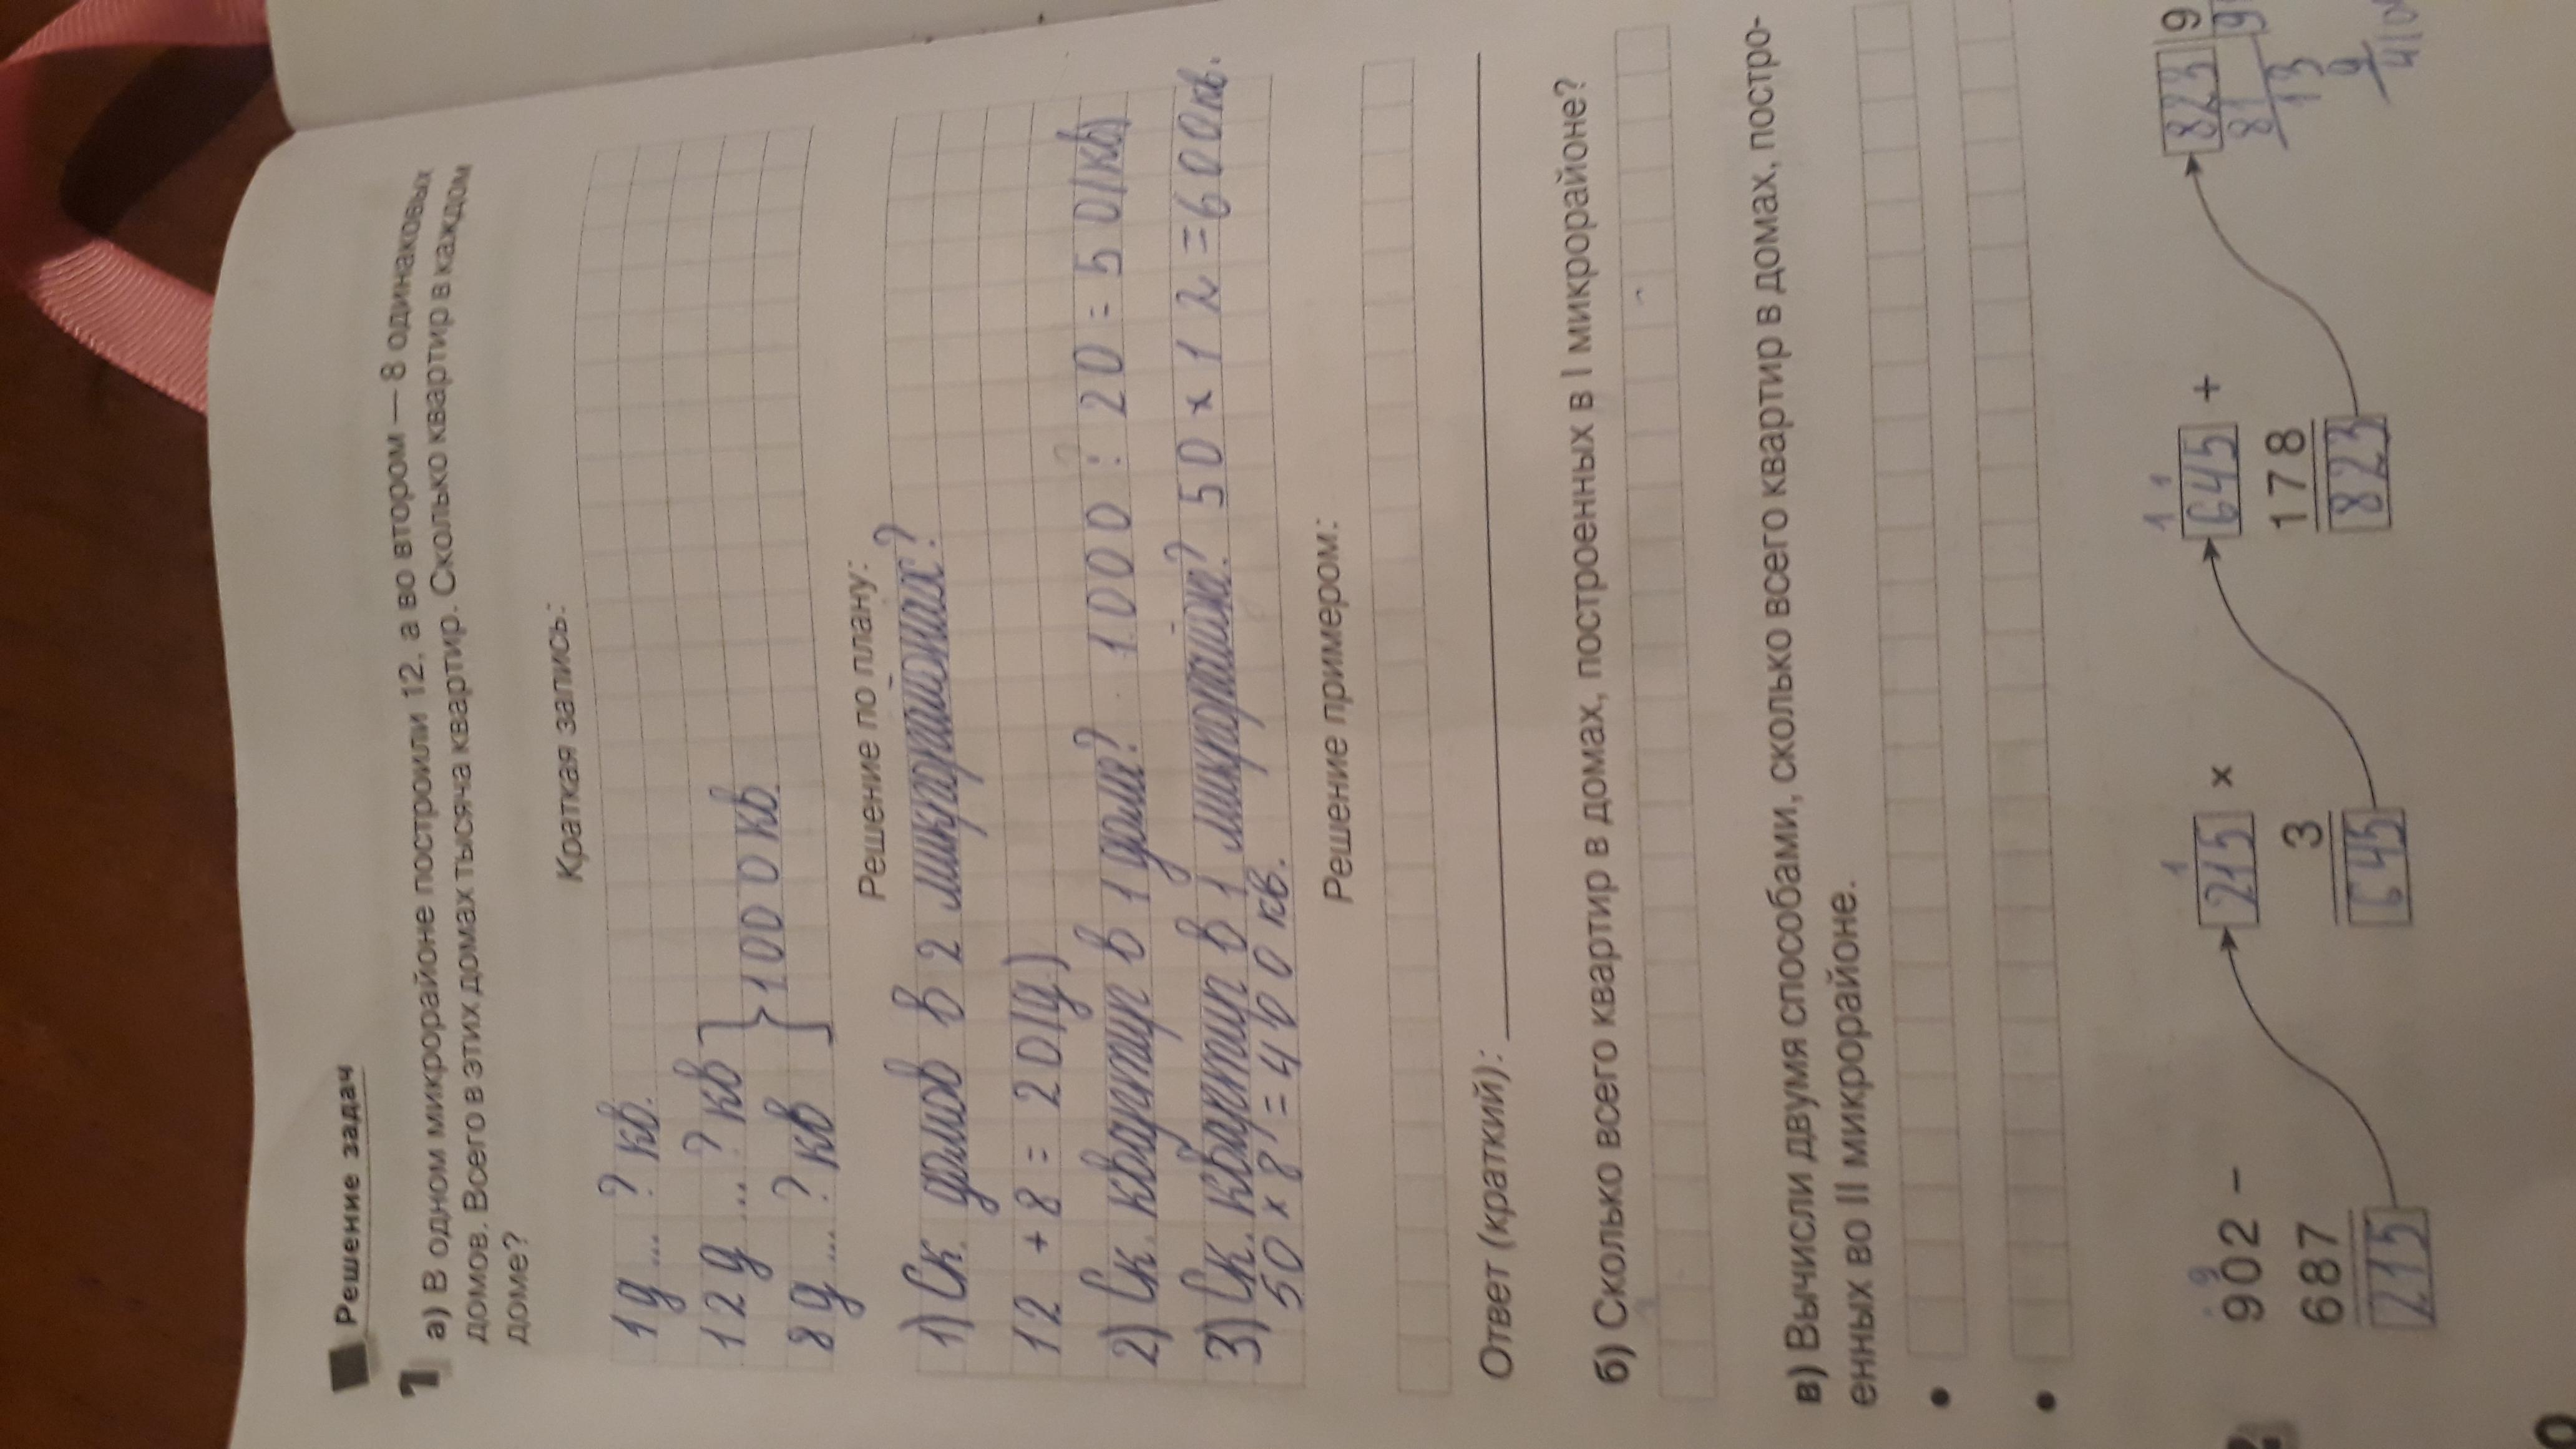 Решение задач
1 а) В одном микрорайоне построили 12, а во втором — 8 одинаковых
домов. Всего в этих домах тысяча квартир. Сколько квартир в каждом
доме?
Краткая запись:
1д....? кв.
12д ...? кв
8д ...? кв } 1000 кв.
Решение по плану:
1) Ск. домов в 2 микрорайонах?
12 + 8 = 20(д.)
2) Ск. квартир в 1 доме? 1000 : 20 = 50(кв)
3) Ск. квартир в 1 микрорайоне? 50 х 12 = 600кв.
50 х 8 = 400 кв.
Решение примером:
Ответ (краткий):
б) Сколько всего квартир в домах, построенных в I микрорайоне?
в) Вычисли двумя способами, сколько всего квартир в домах, постро-
енных во II микрорайоне.
•
•
902 −
687
215
215 ×
3
645
645 +
178
823
823 9
81
13
9